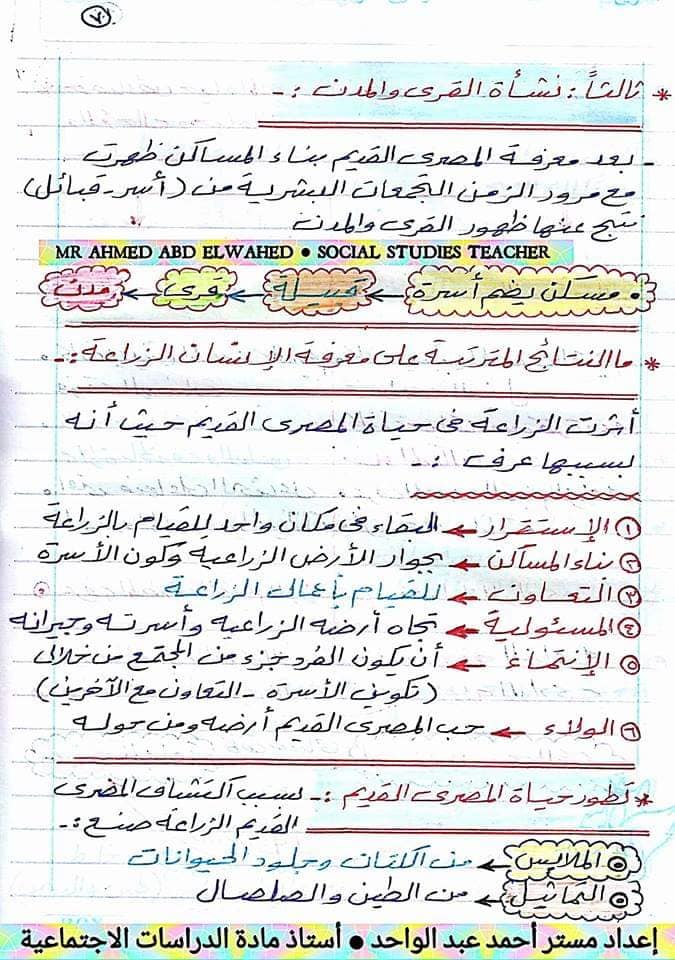 ٧
* ثالثاً : نشأة القرى والمدن :-
- بعد معرفة المصرى القديم بناء المساكن ظهرت
مع مرور الزمن التجمعات البشرية من (أسر - قبائل)
نتج عنها ظهور القرى والمدن
MR AHMED ABD ELWAHED • SOCIAL STUDIES TEACHER
• مسكن يضم أسرة ← قبيلة ← قرى ← مدن
* ما النتائج المترتبة على معرفة الإنسان الزراعة :-
أثرت الزراعة فى حياة المصرى القديم حيث أنه
بسببها عرف :-
١ الإستقرار ← البقاء فى مكان واحد للقيام بالزراعة
٢ بناء المساكن ← بجوار الأرض الزراعية وكون الأسرة
٣ التعاون ← للقيام بأعمال الزراعة
٤ المسئولية ← تجاه أرضه الزراعية وأسرته وجيرانه
٥ الإنتماء ← أن يكون الفرد جزء من المجتمع من خلال
(تكوين الأسرة - التعاون مع الآخرين)
٦ الولاء ← حب المصرى القديم أرضه ومن حوله
* تطور حياة المصرى القديم :- بسبب اكتشاف المصرى
القديم الزراعة صنع :-
٥ الملابس ← من الكتان وجلود الحيوانات
٥ التماثيل ← من الطين والصلصال
إعداد مستر أحمد عبد الواحد • أستاذ مادة الدراسات الاجتماعية